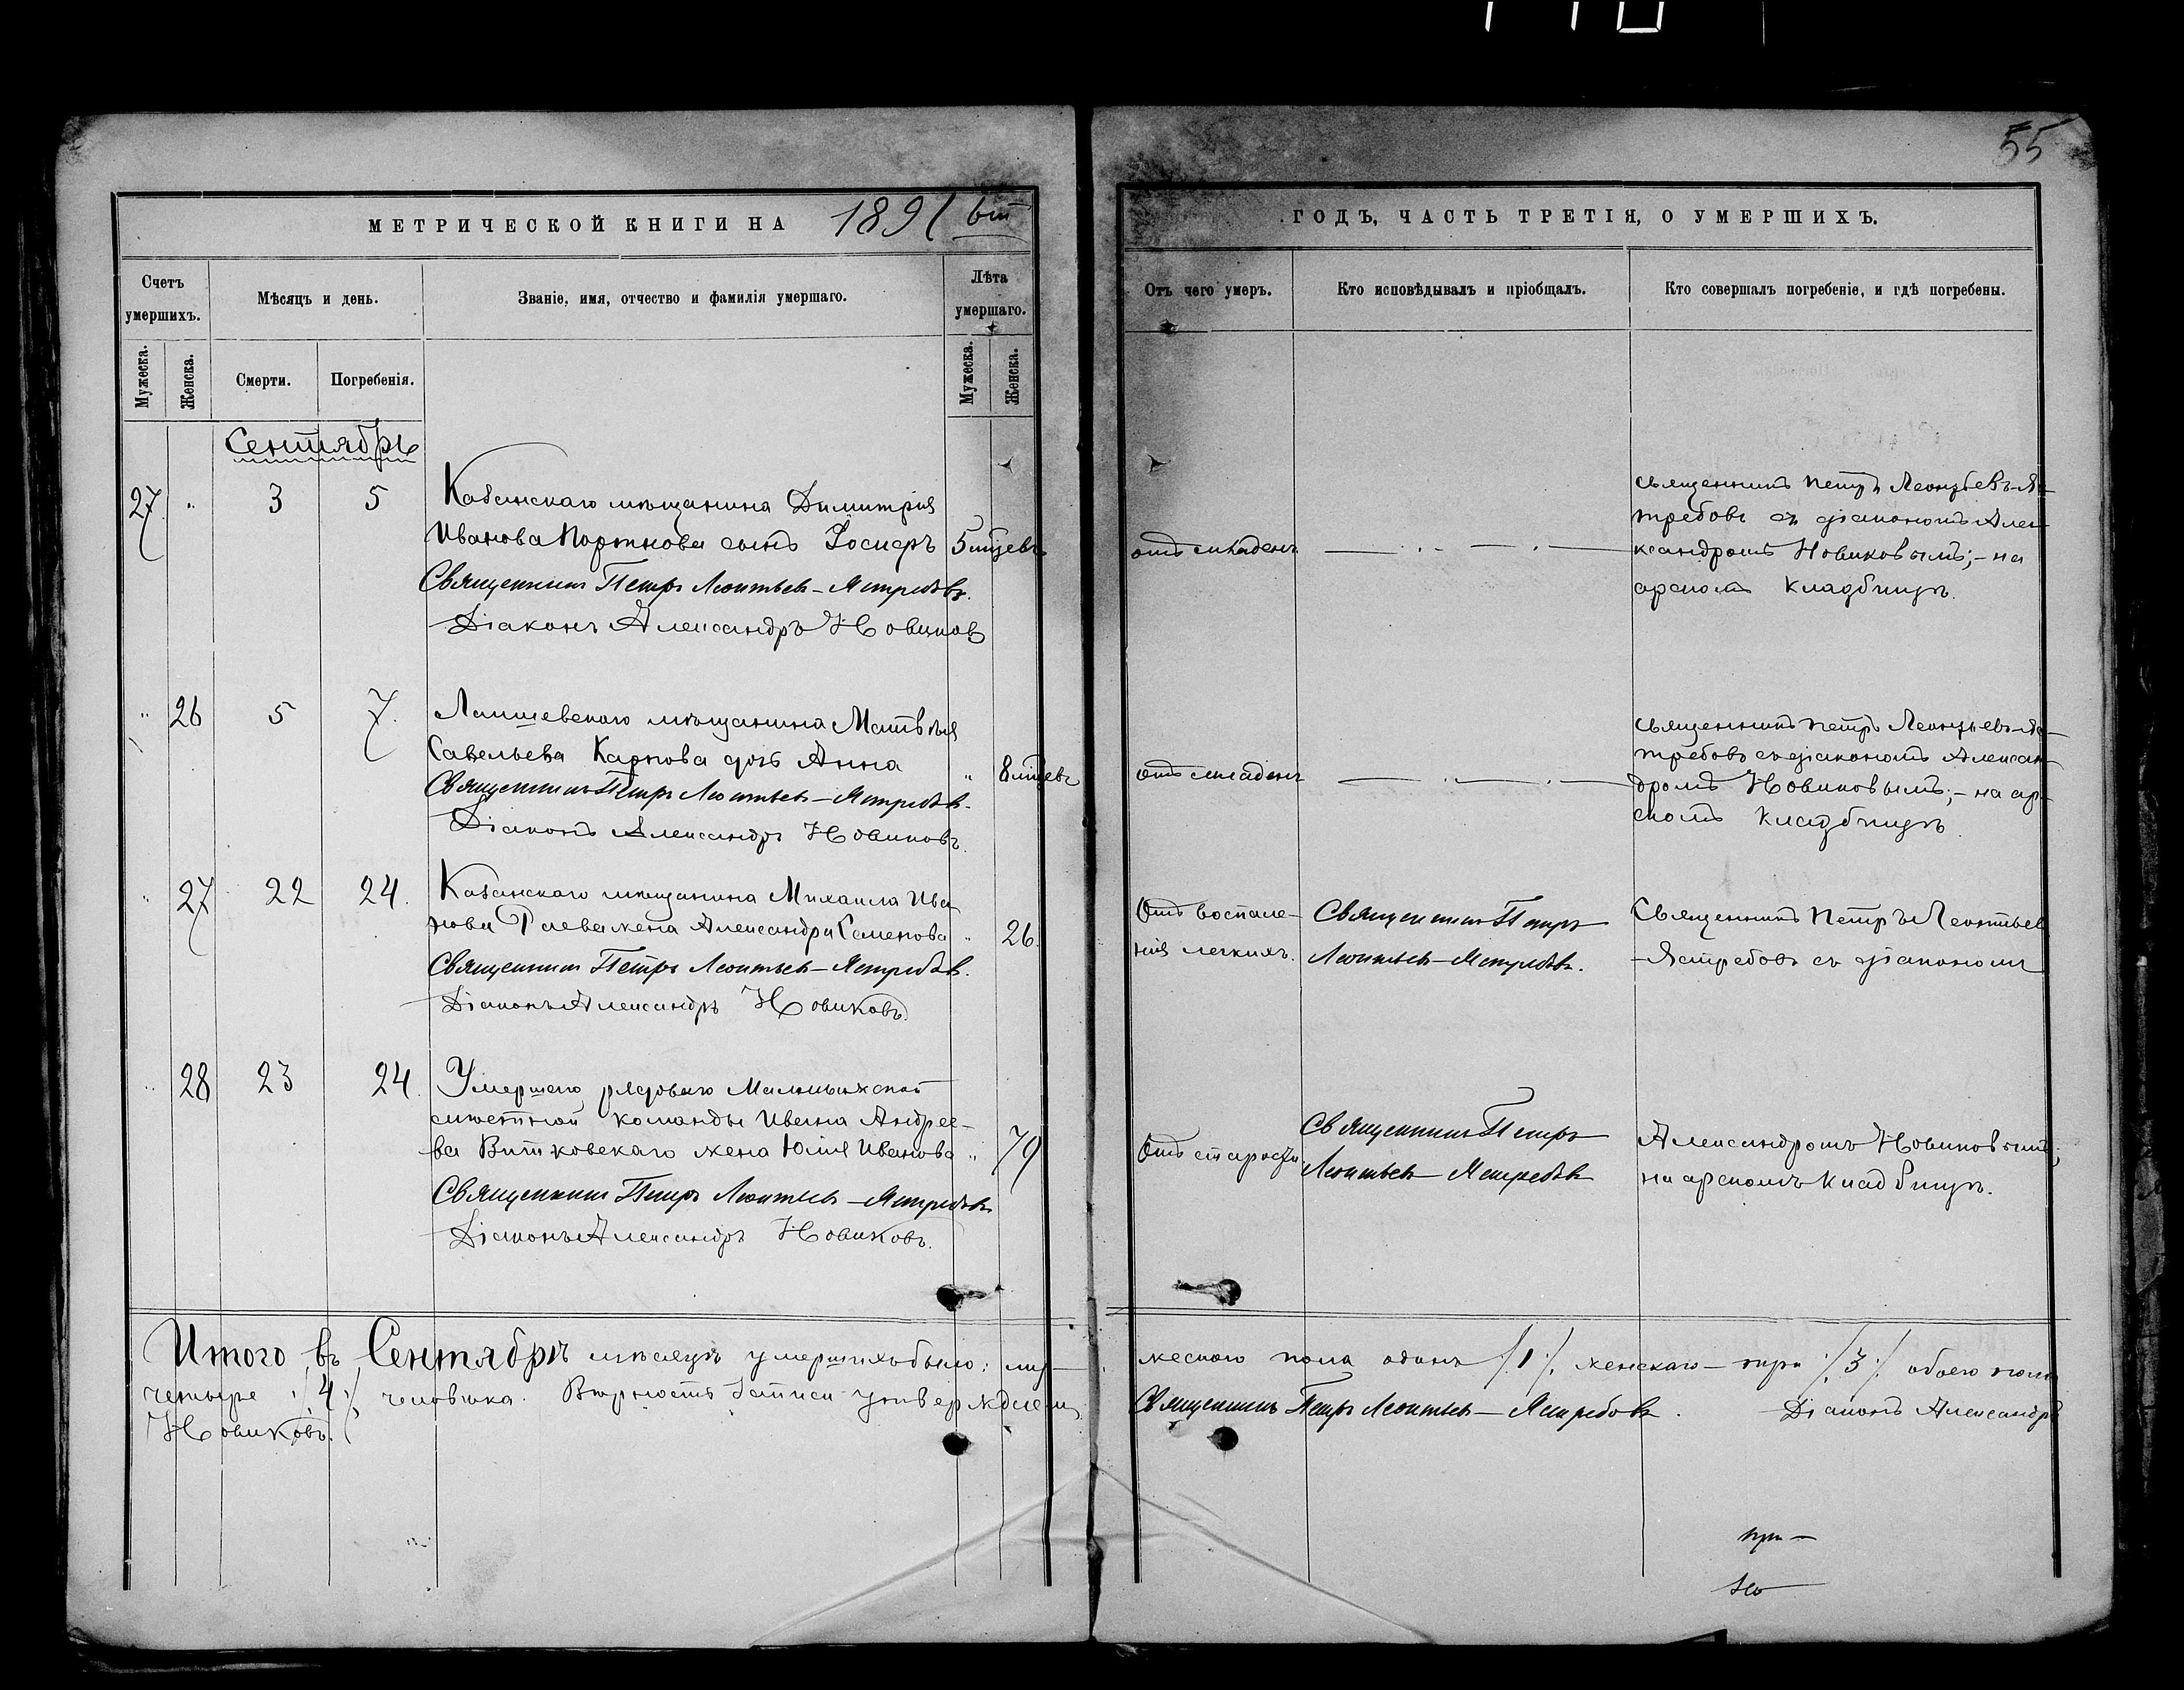 55
МЕТРИЧЕСКОЙ КНИГИ НА 1891 ый
ГОДЪ, ЧАСТЬ ТРЕТІЯ, О УМЕРШИХЪ.
Счетъ умершихъ.
Мѣсяцъ и день.
Званіе, имя, отчество и фамилія умершаго.
Лѣта умершаго.
Отъ чего умеръ.
Кто исповѣдывалъ и пріобщалъ.
Кто совершалъ погребеніе, и гдѣ погребены.
Мужеска.
Женска.
Смерти.
Погребенія.
Мужеска.
Женска.
Сентябрь
27 " 3 5
Казанскаго мѣщанина Димитрія
Иванова Портнова сынъ 5 мцевъ
Священникъ Петръ Леонтьевъ-Ястребовъ.
Діаконъ Александръ Новиковъ
отъ младен.
священникъ Петръ Леонтьевъ-Яс-
требовъ съ діакономъ Алек-
ксандромъ Новиковымъ;- на
арскомъ кладбищѣ.
" 26 5 7.
Лаишевскаго мѣщанина Матвѣя
Савельева Карпова дочь Анна " 8 мцевъ
Священникъ Петръ Леонтьевъ-Ястребовъ.
Діаконъ Александръ Новиковъ.
отъ младен.
священникъ Петръ Леонтьевъ-Яс-
требовъ съ діакономъ Алексан-
дромъ Новиковымъ;- на ар-
скомъ кладбищѣ
" 27 22 24.
Казанскаго мѣщанина Михаила Ива
нова жена Александра Семенова " 26.
Священникъ Петръ Леонтьевъ-Ястребовъ.
Діаконъ Александръ Новиковъ.
Отъ воспале-
нія легкихъ.
Священникъ Петръ
Леонтьевъ-Ястребовъ.
Священникъ Петръ Леонтьев
-Ястребовъ съ діакономъ
" 28 23 24.
Умершаго рядоваго Малмыжской
мѣстной команды Ивана Андрее-
ва Витковскаго жена Юлія Иванова " 79
Священникъ Петръ Леонтьевъ-Ястребовъ
Діаконъ Александръ Новиковъ.
Отъ старости
Священникъ Петръ
Леонтьевъ-Ястребовъ
Александромъ Новиковымъ;
на арскомъ кладбищѣ.
Итого въ Сентябрѣ мѣсяцѣ умершихъ было: му-
жескаго пола одинъ /1/, женскаго - три /3/ обоего пола
четыре /4/ человѣка. Вѣрность записи утверждаемъ
Священникъ Петръ Леонтьевъ-Ястребовъ. Діаконъ Александръ
Новиковъ.